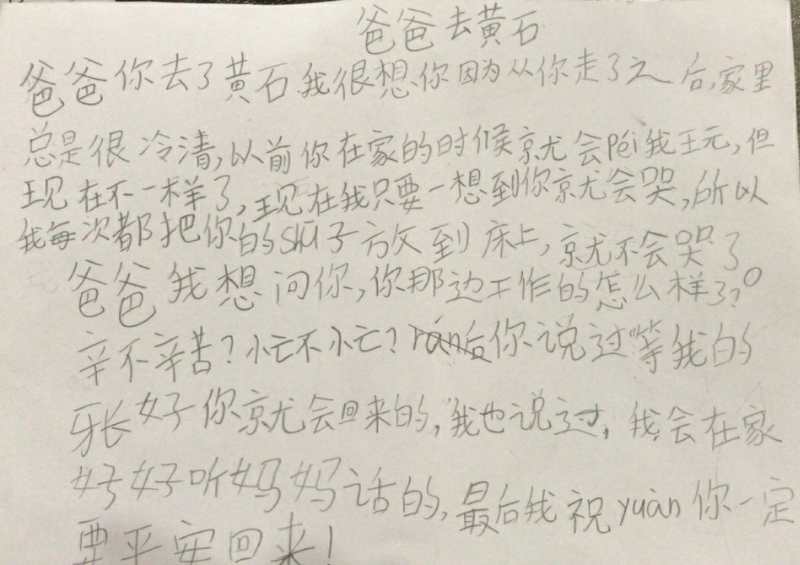 爸爸去黄石
爸爸你去了黄石我很想你因为从你走了之后,家里
总是很冷清,以前你在家的时候就会péi我玩,但
现在不一样了,现在我只要一想到你就会哭,所以
我每次都把你的shū子放到床上,就不会哭了
爸爸我想问你,你那边工作的怎么样了?。
辛不辛苦?忙不忙?rán后你说过等我的
牙长好你就会回来的,我也说过,我会在家
好好听妈妈话的,最后我祝yuàn你一定
要平安回来!